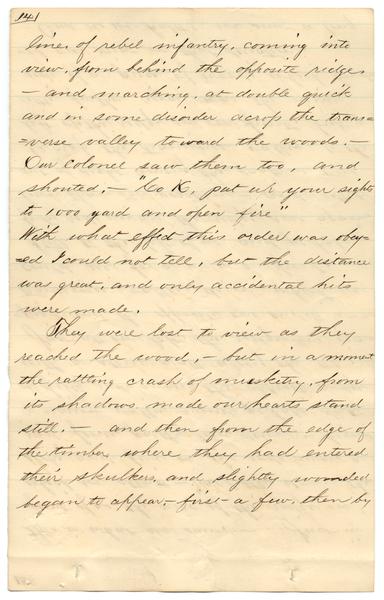 141
lines of rebel infantry, coming into
view, from behind the opposite ridges
- and marching, at double quick
and in some disorder across the trans=
=verse valley toward the woods. -
Our Colonel saw them too, and
shouted, - "Co K, put up your sights
to 1000 yard and open fire"
With what effect this order was obey-
=ed I could not tell, but the distance
was great, and only accidental hits
were made.
They were lost to view as they
reached the wood, - but in a moment
the rattling crash of musketry, from
its shadows made our hearts stand
still. - and then from the edge of
the timber where they had entered
their skulkers, and slightly wounded
began to appear, - first a few, then by